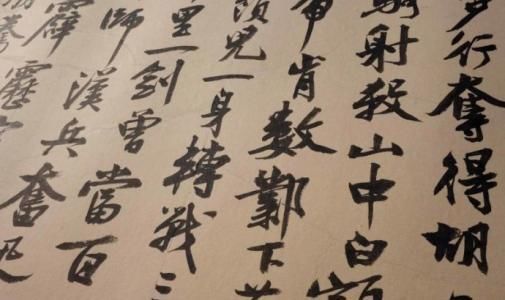 步行奪得胡
騎射殺山中白額
肯數鄴下黃
須兒一身轉戰三
里一劍曾當百
師漢兵奮迅
霹靂